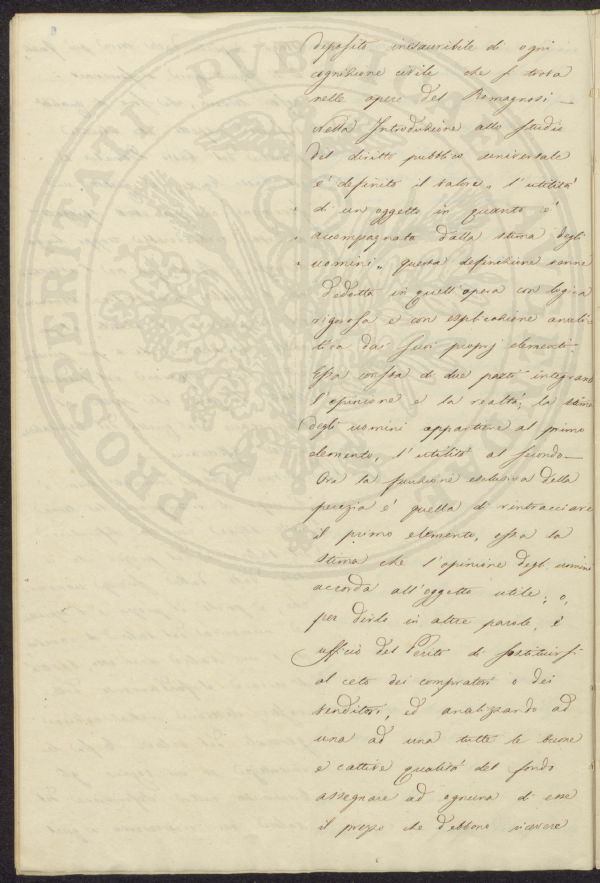 deposito inesauribile di ogni
cognizione civile che si trova
nelle opere del Romagnosi —
Nella Introduzione allo studio
del diritto pubblico universale
è definito il valore „ l'utilità
„ di un oggetto in quanto è
„ accompagnata dalla stima degli
„ uomini „ questa definizione venne
dedotta in quell'opera con logica
rigorosa e con esplicazione anali-
tica dai suoi proprj elementi.
Essa consta di due parti integranti
l'opinione e la realtà; la stima
degli uomini appartiene al primo
elemento, l'utilità al secondo —
Ora la funzione esclusiva della
perizia è quella di rintracciare
il primo elemento, ossia la
stima che l'opinione degli uomini
accorda all'oggetto utile; o,
per dirlo in altre parole, è
ufficio del Perito di sostituirsi
al ceto dei compratori o dei
venditori, ed analizzando ad
una ad una tutte le buone
e cattive qualità del fondo
assegnare ad ognuna di esse
il prezzo che debbono ricevere
PROSPERITATI PVBLICAE